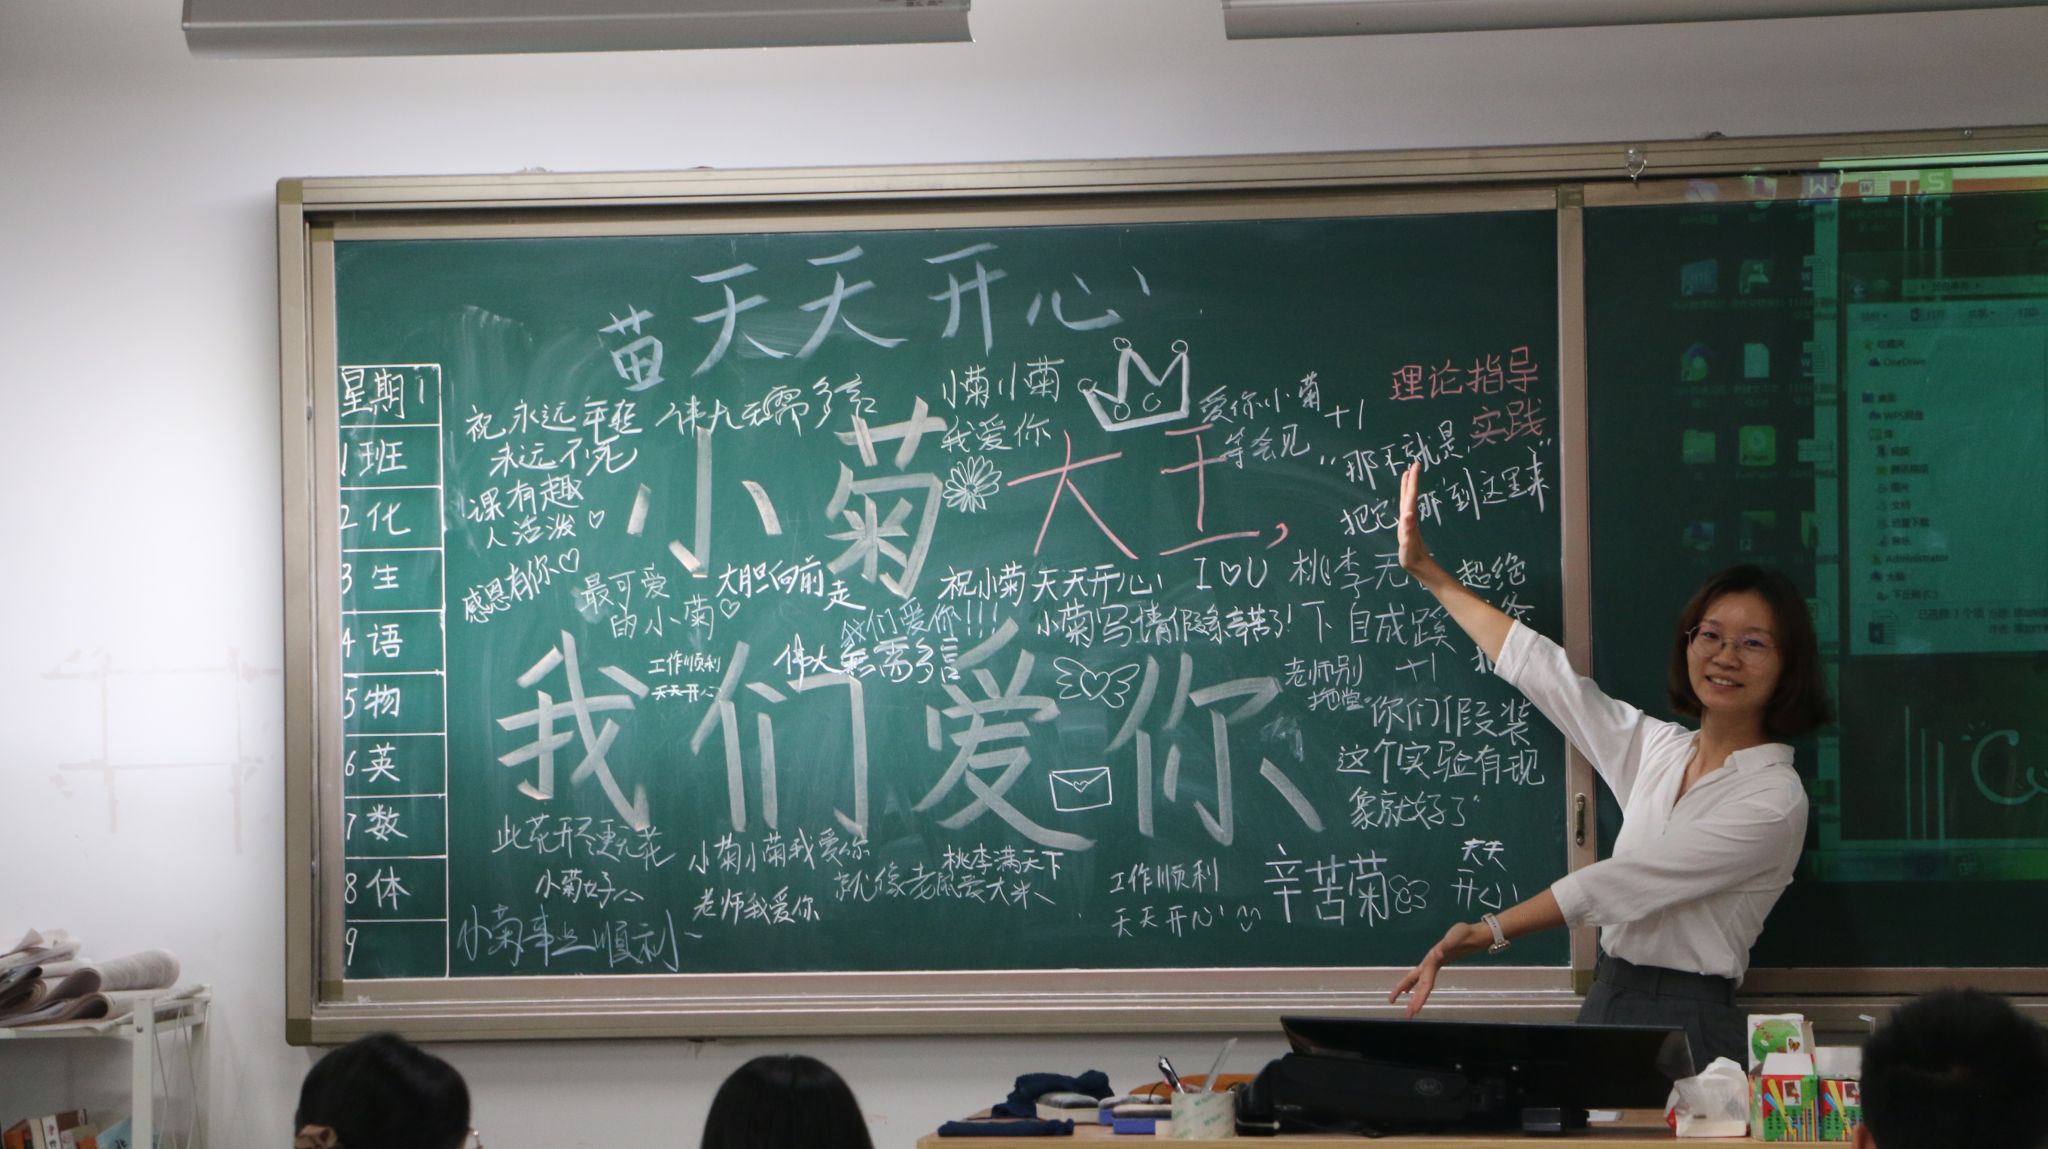 苗天天开心
星期1
1班
2化
3生
4语
5物
6英
7数
8体
9
祝永远年轻
永远不死
课有趣
人活泼
感恩有你
伟大无需多言
小菊小菊
我爱你
爱你小菊
等会见
+1
理论指导
实践
"那不就是
把它那到这里来"
小菊大王，
最可爱
的小菊
大胆向前走
祝小菊天天开心
I U
我们爱你!!!
小菊写请假条辛苦了!
桃李无
下自成蹊
+1
超绝
工作顺利
天天开心
伟大无需多言
老师别
拖堂
我们爱你
"你们假装
这个实验有现
象就好了"
此花开尽更无花
小菊好
小菊事业顺利
小菊小菊我爱你
就像老鼠爱大米
老师我爱你
桃李满天下
工作顺利
天天开心
辛苦菊
天天
开心
OneDrive
Administrator